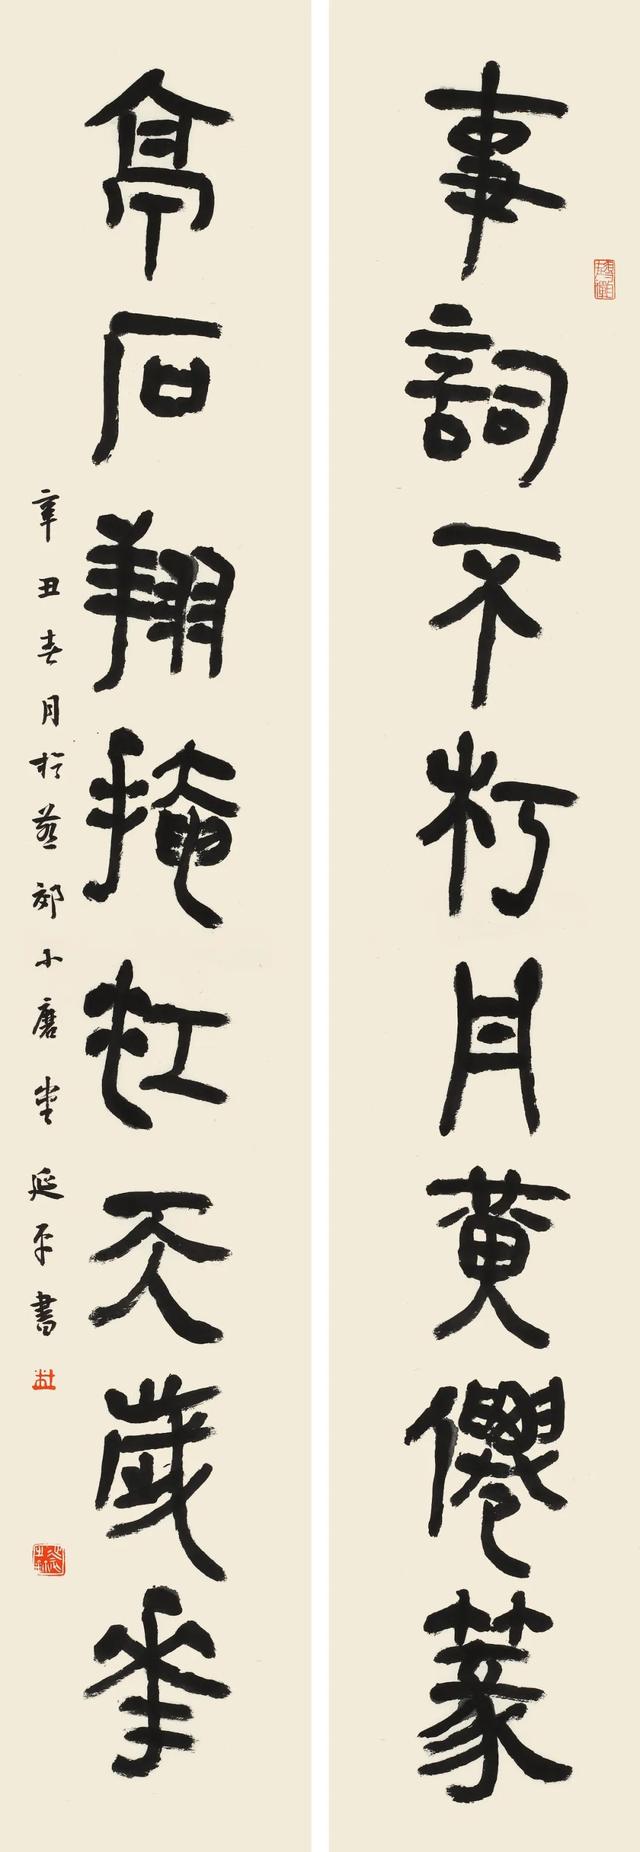 事詞不朽月黄僊篆
亭石翔掩虹天歲華
辛丑春月於燕郊小磨堂 延平書